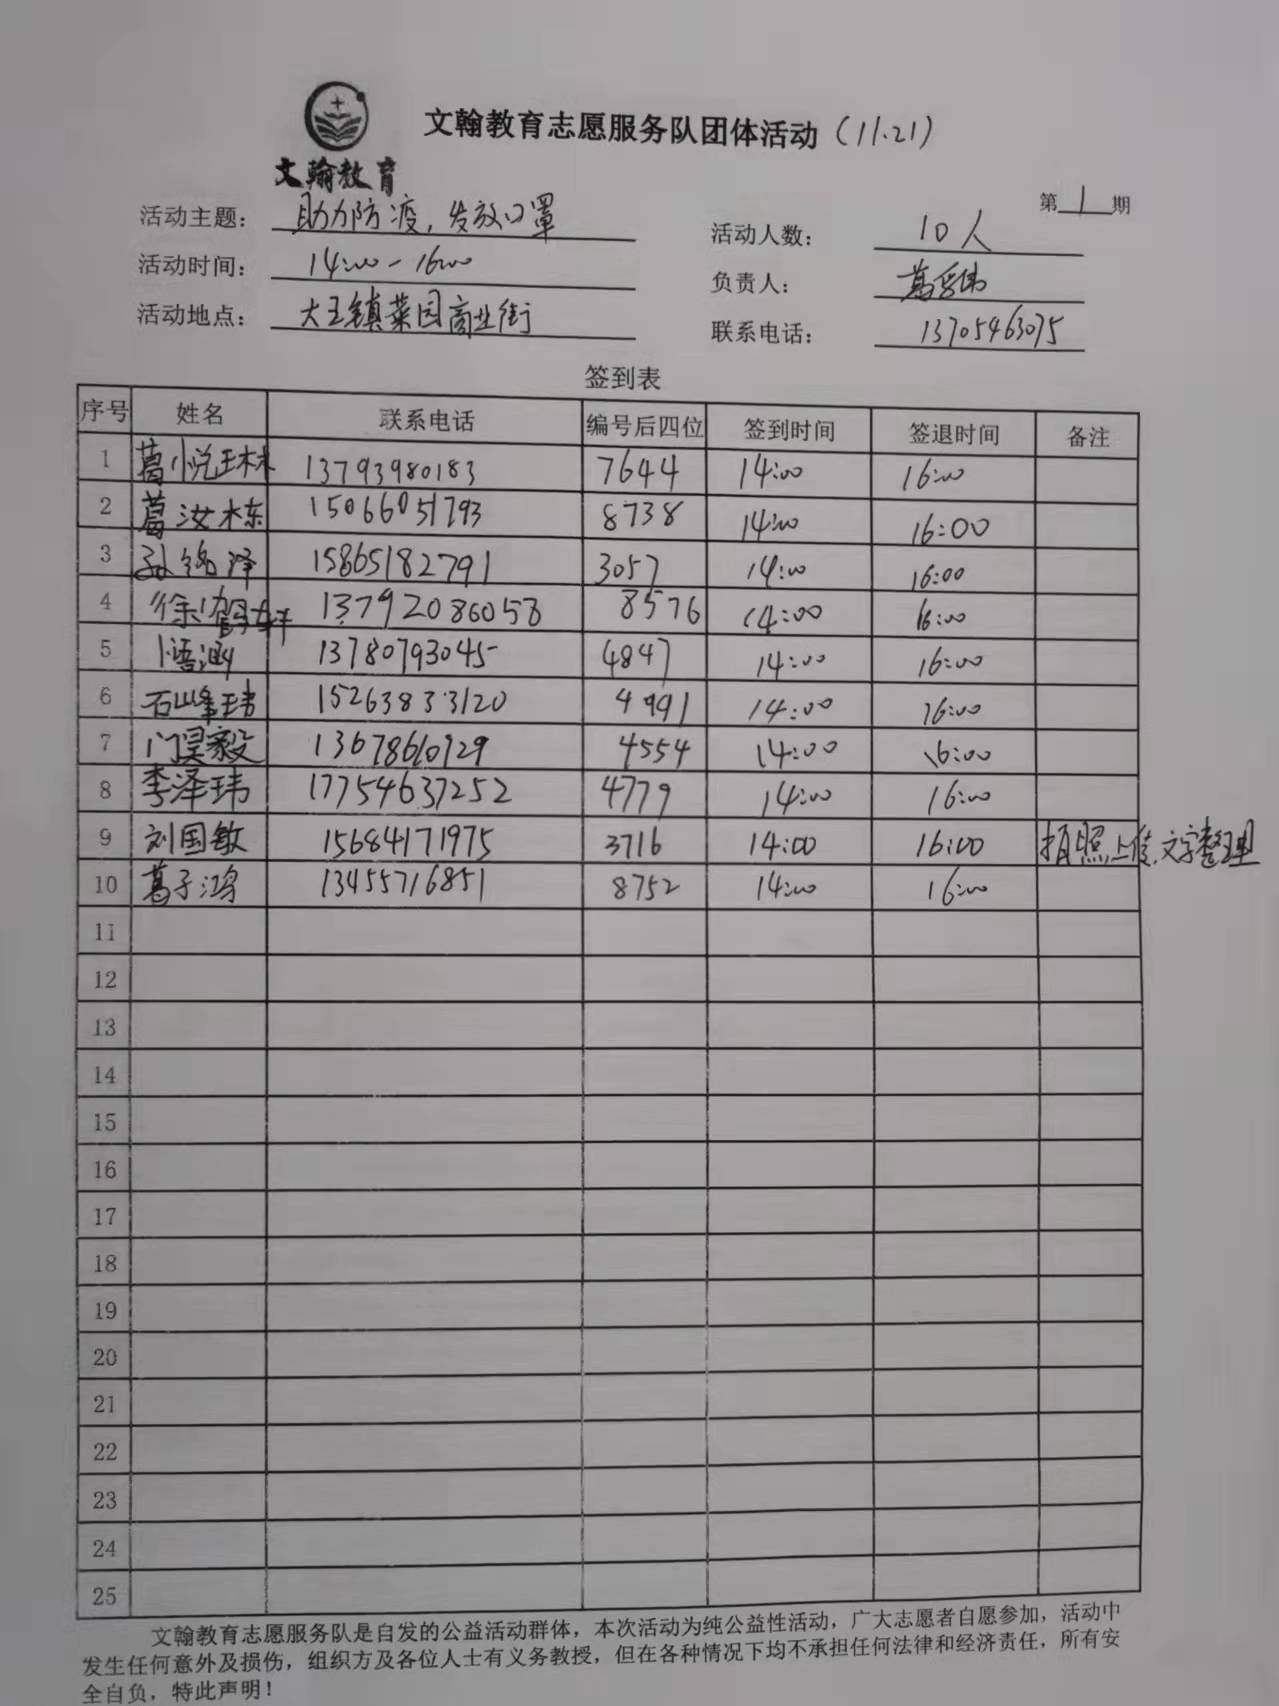 文翰教育志愿服务队团体活动（11.21）
文翰教育
第1期
活动主题：助力防疫，发放口罩
活动人数：10人
活动时间：14:00-16:00
负责人：葛
活动地点：大王镇菜园商业街
联系电话：13705463075
签到表
序号 姓名 联系电话 编号后四位 签到时间 签退时间 备注
1 葛悦琳 13793980183 7644 14:00 16:00
2 葛汝栋 15066051793 8738 14:00 16:00
3 孙锦泽 15865182791 3057 14:00 16:00
4 徐 轩 13792086058 8576 14:00 16:00
5 卜语涵 13780793045 4847 14:00 16:00
6 石峰玮 15263833120 4991 14:00 16:00
7 门昊毅 13678610729 4554 14:00 16:00
8 李泽玮 17754637252 4779 14:00 16:00
9 刘国敏 15684171975 3716 14:00 16:00 拍照上传、文字整理
10 葛子鸿 13455716851 8752 14:00 16:00
11
12
13
14
15
16
17
18
19
20
21
22
23
24
25
文翰教育志愿服务队是自发的公益活动群体，本次活动为纯公益性活动，广大志愿者自愿参加，活动中
发生任何意外及损伤，组织方及各位人士有义务教授，但在各种情况下均不承担任何法律和经济责任，所有安
全自负，特此声明！